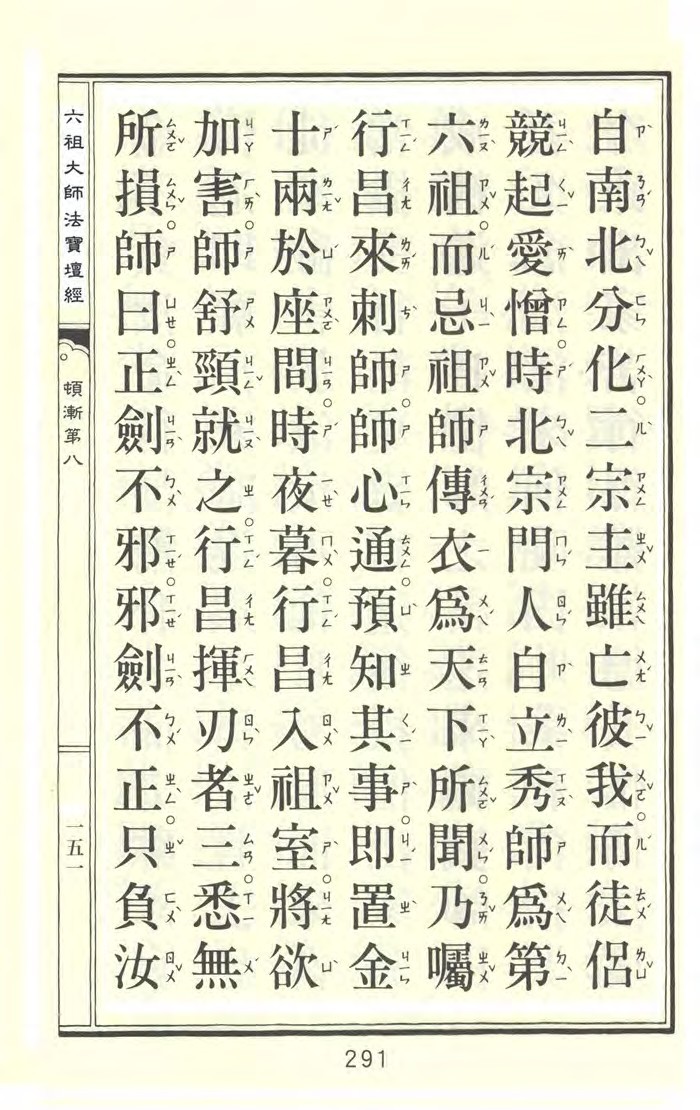 自南北分化。二宗主雖亡彼我。而徒侶
競起愛憎。時北宗門人自立秀師爲第
六祖。而忌祖師傳衣爲天下所聞。乃囑
行昌來刺師。師心通。預知其事。即置金
十兩於座間。時夜暮。行昌入祖室。將欲
加害。師舒頸就之。行昌揮刃者三。悉無
所損。師曰。正劍不邪。邪劍不正。只負汝
六祖大師法寶壇經
頓漸第八
一五一
291